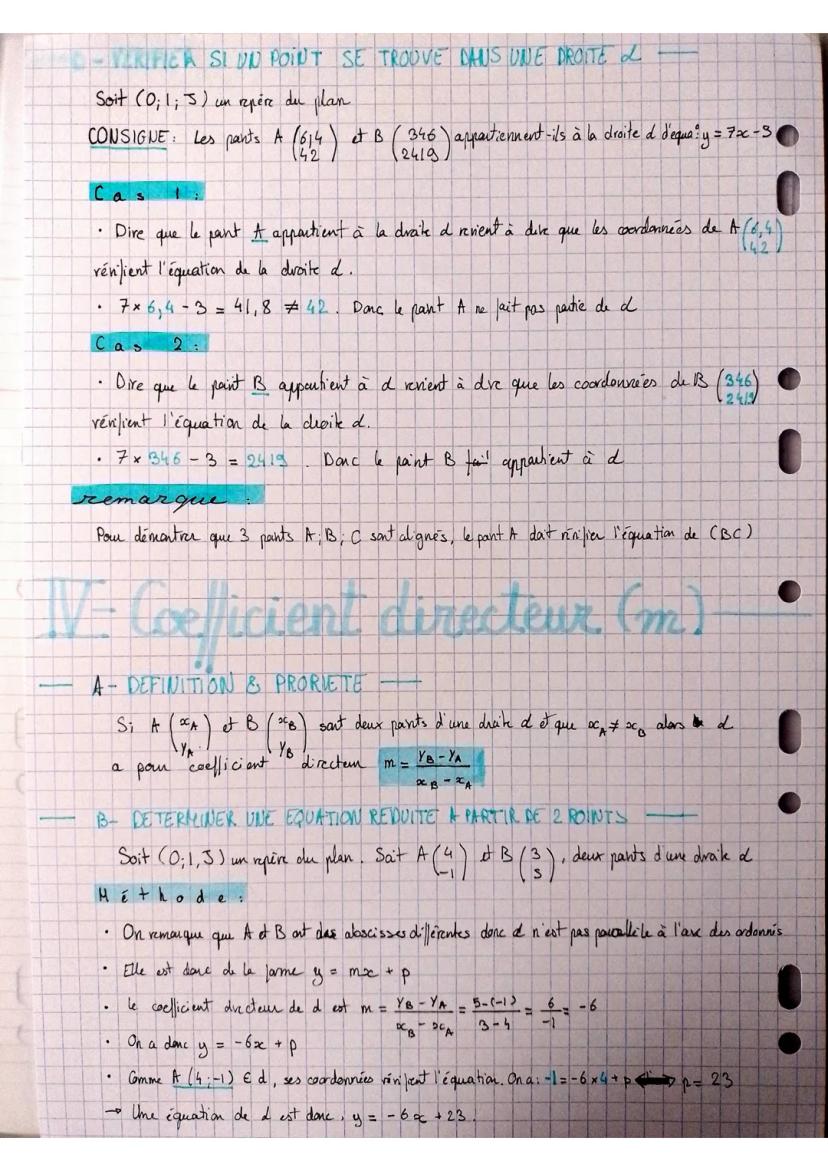 - VERIFIER SI UN POINT SE TROUVE DANS UNE DROITE d
Soit (O; I; J) un repère du plan
CONSIGNE: Les points A (6,4 42) et B (346 2419) appartiennent-ils à la droite d d'equa°: y = 7x - 3
Cas 1:
• Dire que le point A appartient à la droite d revient à dire que les coordonnées de A (6,4 42)
vérifient l'équation de la droite d.
• 7 × 6,4 - 3 = 41,8 ≠ 42. Donc le point A ne fait pas partie de d
Cas 2:
• Dire que le point B appartient à d revient à dire que les coordonnées de B (346 2419)
vérifient l'équation de la droite d.
• 7 × 346 - 3 = 2419. Donc le point B appartient à d
remarque:
Pour démontrer que 3 points A; B; C sont alignés, le point A doit vérifier l'équation de (BC)
IV- Coefficient directeur (m)
A- DEFINITION & PRORIETE
Si A (xA yA) et B (xB yB) sont deux points d'une droite d et que xA ≠ xB alors d
a pour coefficient directeur m = (yB - yA) / (xB - xA)
B- DETERMINER UNE EQUATION REDUITE A PARTIR DE 2 POINTS
Soit (O; I, J) un repère du plan. Soit A (4 -1) et B (3 5), deux points d'une droite d
Méthode:
• On remarque que A et B ont des abscisses différentes donc d n'est pas parallèle à l'axe des ordonnés
• Elle est donc de la forme y = mx + p
• Le coefficient directeur de d est m = (yB - yA) / (xB - xA) = (5 - (-1)) / (3 - 4) = 6 / -1 = -6
• On a donc y = -6x + p
• Comme A (4; -1) ∈ d, ses coordonnées vérifient l'équation. On a: -1 = -6 × 4 + p ⟺ p = 23
→ Une équation de d est donc: y = -6x + 23.